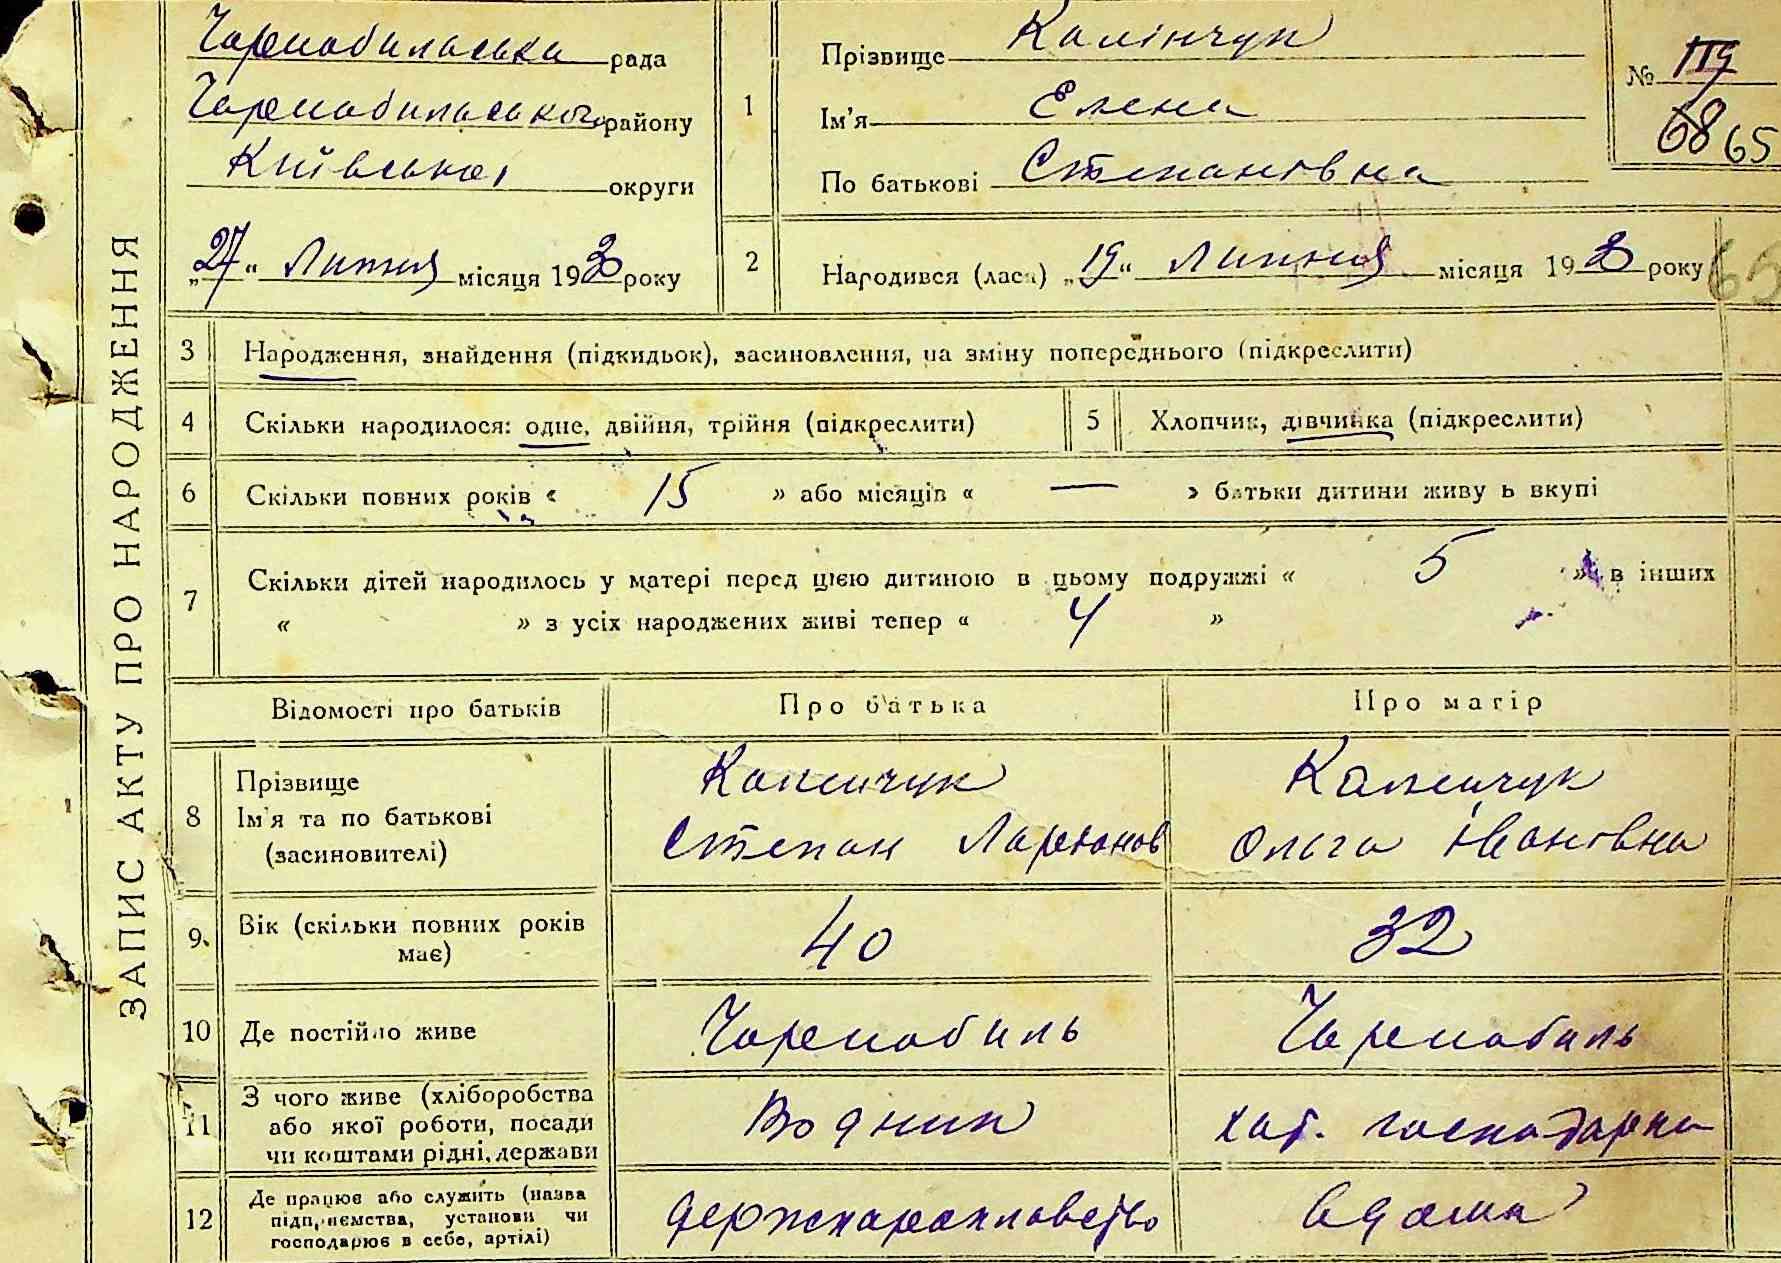 ЗАПИС АКТУ ПРО НАРОДЖЕННЯ
Чорнобильська рада
Чорнобильського району
Київської округи
„27“ Липня місяця 1930 року
1
Прізвище Калінчук
Ім'я Елена
По батькові Степановна
№ 119
68 65
2
Народився (лась) „19“ Липня місяця 1930 року
65
3 Народження, знайдення (підкидьок), засиновлення, на зміну попереднього (підкреслити)
4 Скільки народилося: одне, двійня, трійня (підкреслити)
5 Хлопчик, дівчинка (підкреслити)
6 Скільки повних років « 15 » або місяців « — » батьки дитини живуть вкупі
7 Скільки дітей народилось у матері перед цією дитиною в цьому подружжі « 5 » в інших
« » з усіх народжених живі тепер « 4 »
Відомості про батьків Про батька Про матір
8 Прізвище
Ім'я та по батькові
(засиновителі)
Каленчук
Степан
Каленчук
Ольга Івановна
9. Вік (скільки повних років має) 40 32
10 Де постійно живе Чорнобиль Чорнобиль
11 З чого живе (хліборобства
або якої роботи, посади
чи коштами рідні, держави
Водник
хат. господарка
12 Де працює або служить (назва
підприємства, установи чи
господарює в себе, артілі)
Держпароплавство
вдома